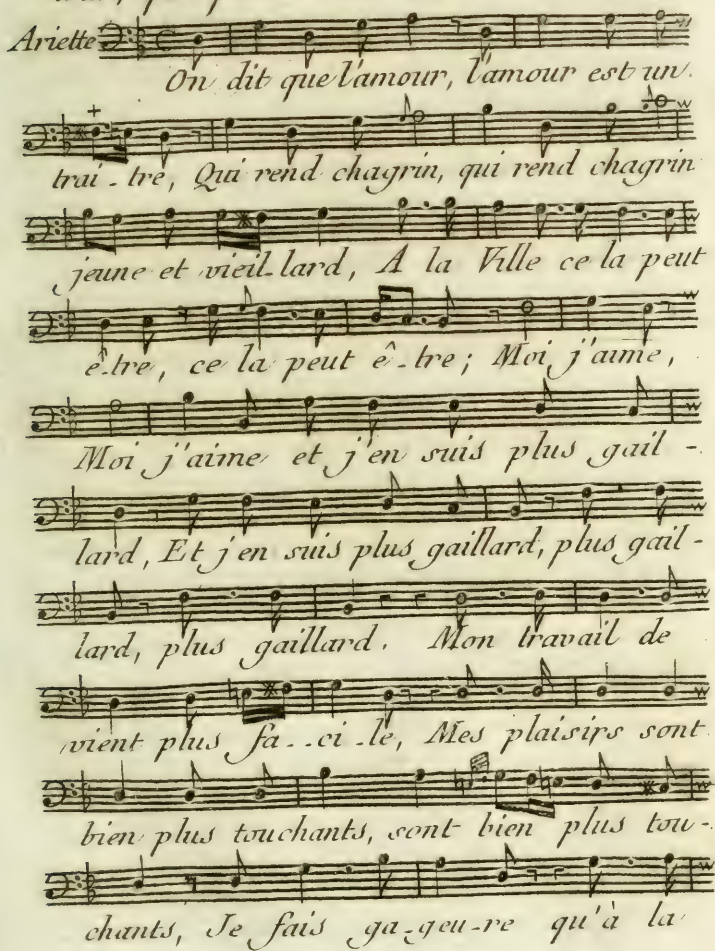 Ariette
On dit que l'amour, l'amour est un
trai-tre, Qui rend chagrin, qui rend chagrin
jeune et vieil-lard, A la Ville ce la peut
ê-tre, ce la peut ê-tre; Moi j'aime,
Moi j'aime et j'en suis plus gail-
lard, Et j'en suis plus gaillard, plus gail-
lard, plus gaillard. Mon travail de
vient plus fa--ci-le, Mes plaisirs sont
bien plus touchants, sont bien plus tou-
chants, Je fais ga-geu-re qu'à la